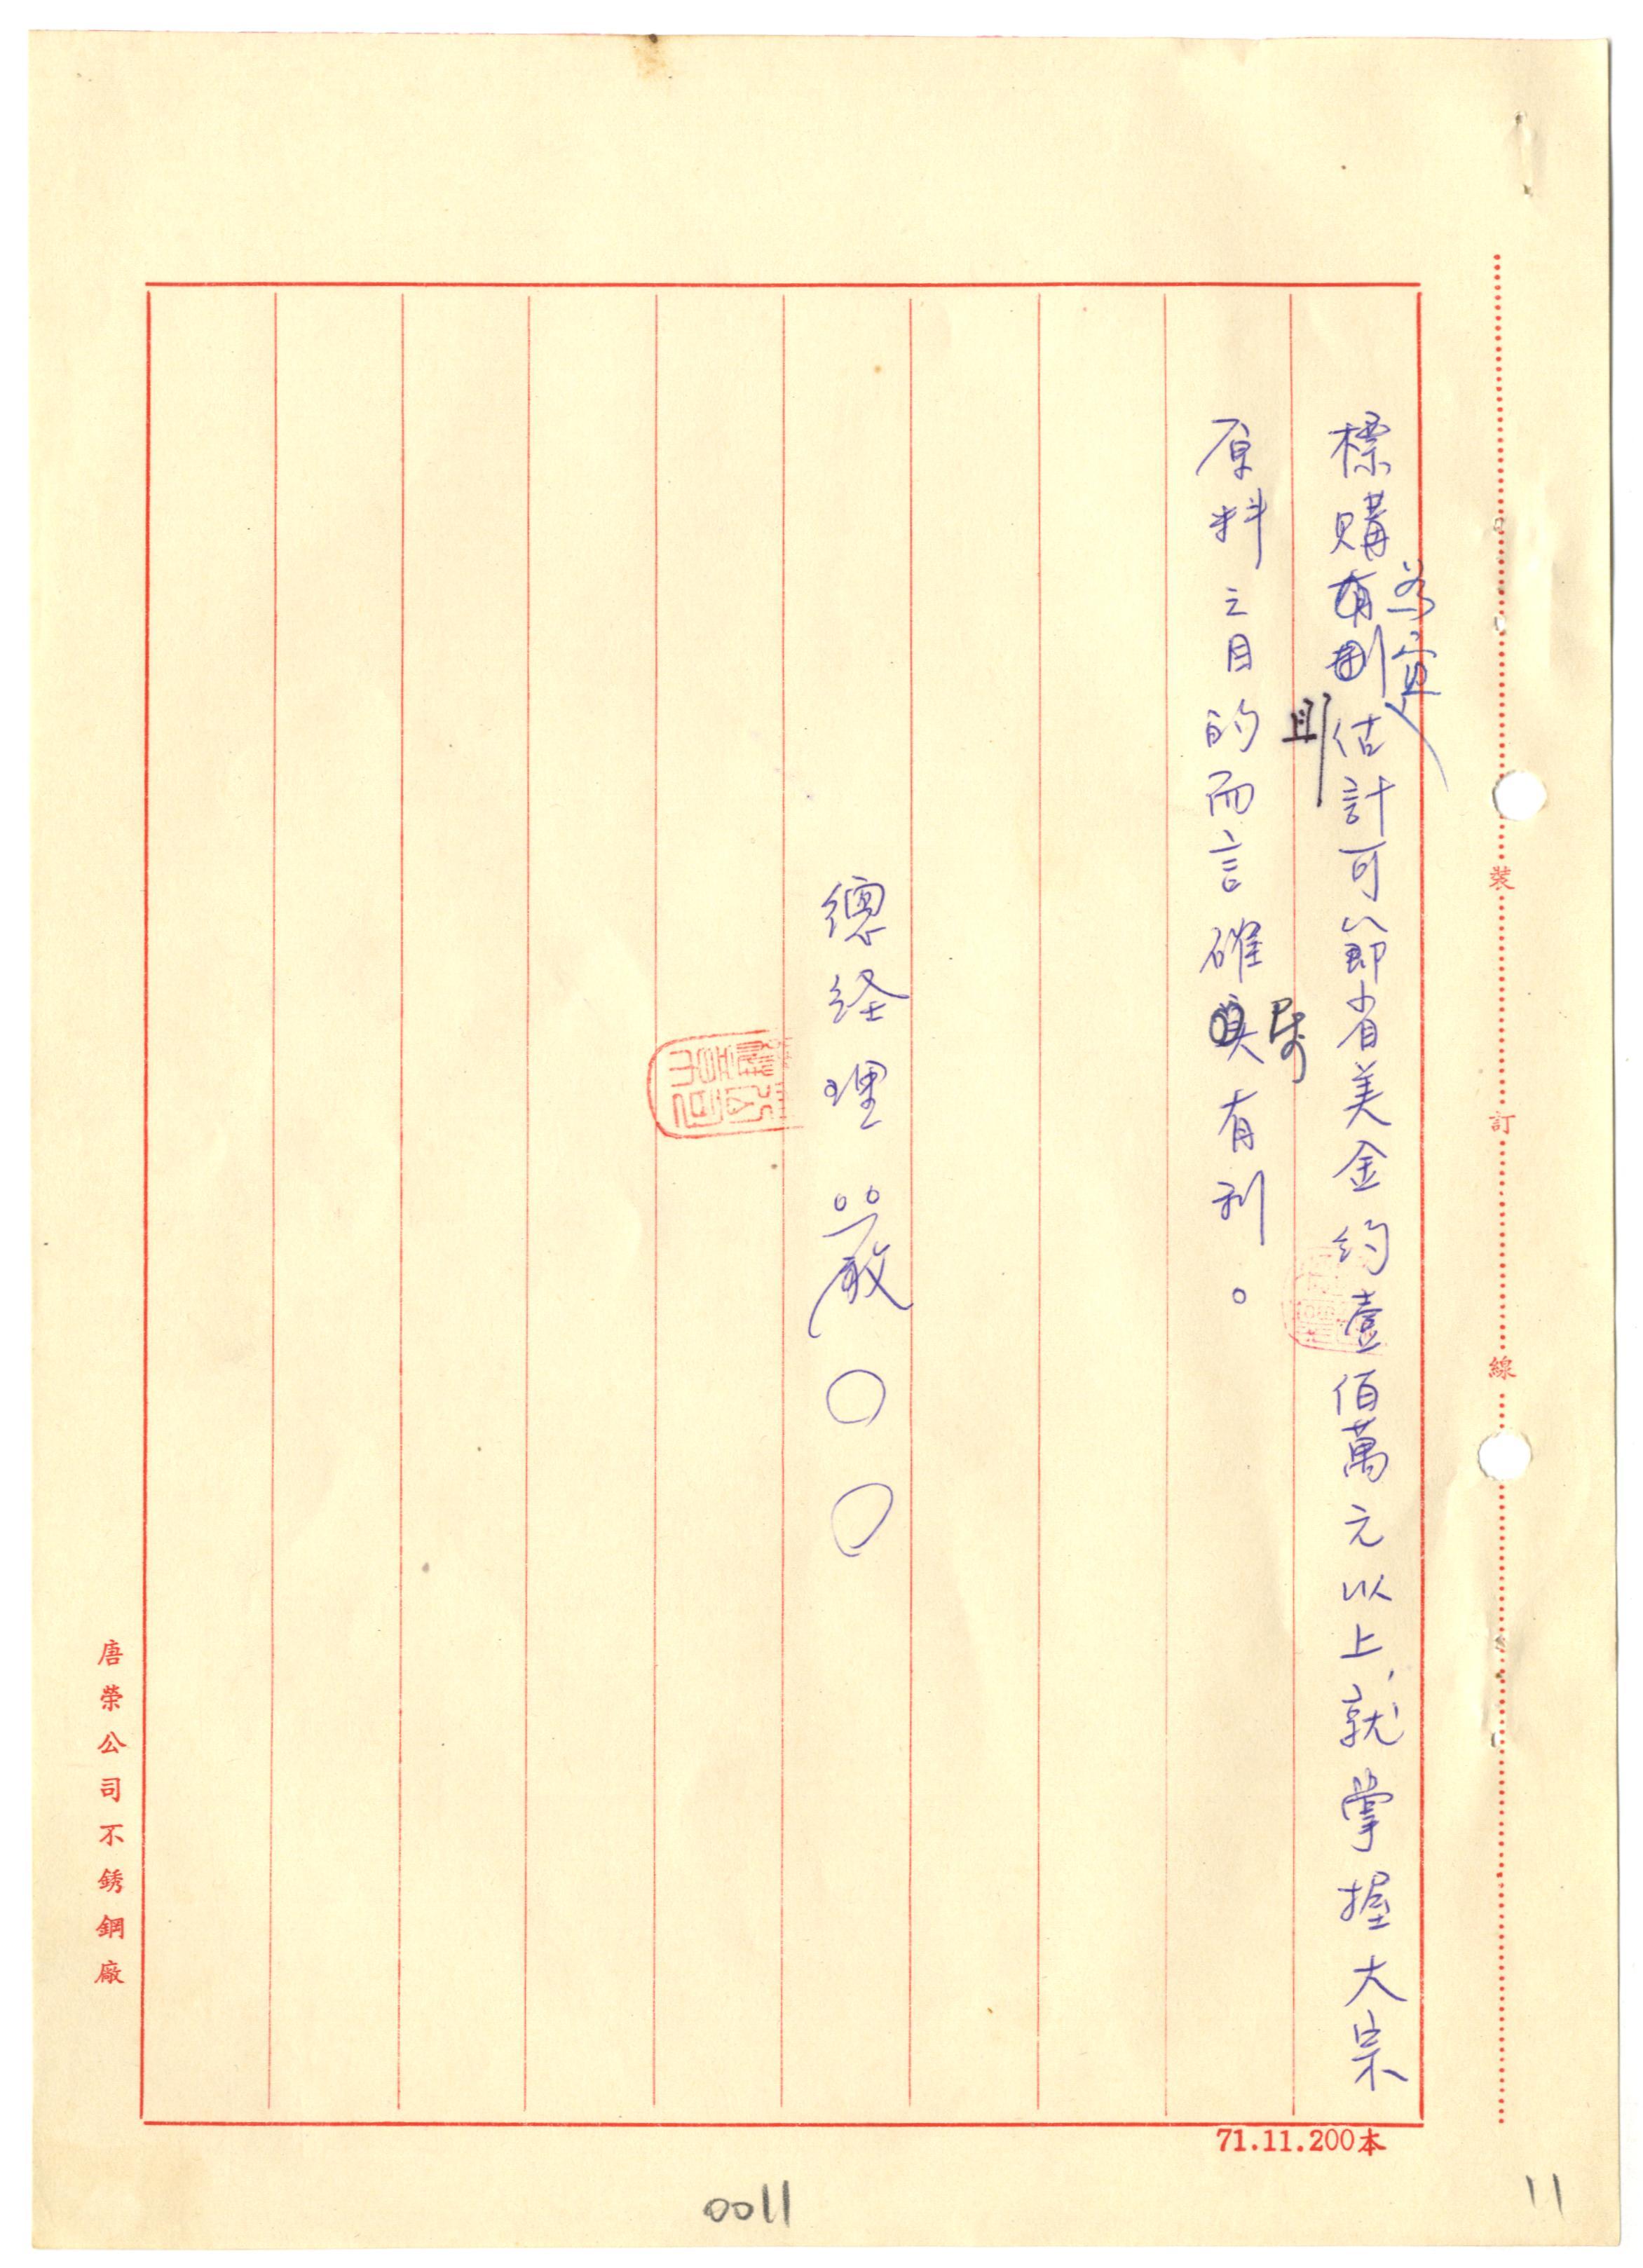 標購為宜估計可節省美金約壹佰萬元以上,就掌握大宗
則
原料之目的而言確屬有利。
總経理嚴〇〇
裝訂線
唐榮公司不銹鋼廠
71.11.200本
0011
11